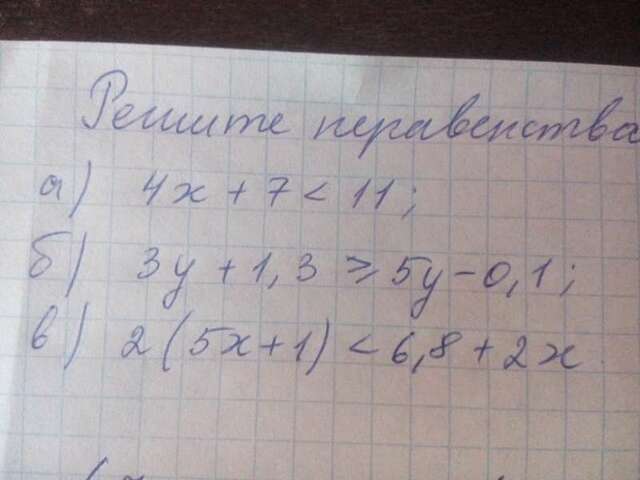 Решите неравенства
а) 4x + 7 < 11;
б) 3y + 1,3 ⩾ 5y - 0,1;
в) 2(5x+1) < 6,8 + 2x